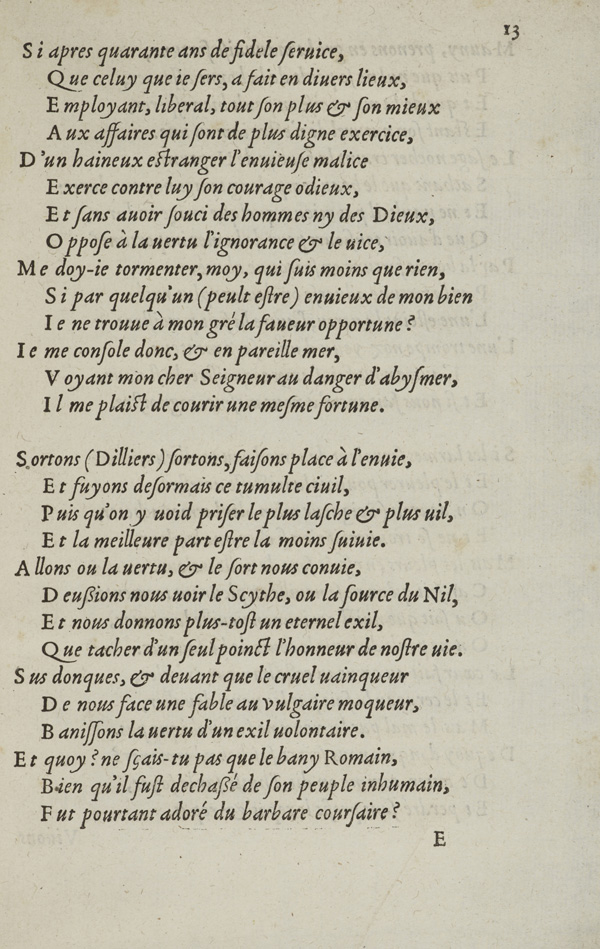 13
Si apres quarante ans de fidele ſeruice,
Que celuy que ie ſers, a fait en diuers lieux,
Employant, liberal, tout ſon plus & ſon mieux
Aux affaires qui ſont de plus digne exercice,
D'un haineux eſtranger l'enuieuſe malice
Exerce contre luy ſon courage odieux,
Et ſans auoir ſouci des hommes ny des Dieux,
Oppoſe à la uertu l'ignorance & le uice,
Me doy-ie tormenter, moy, qui ſuis moins que rien,
Si par quelqu'un (peult eſtre) enuieux de mon bien
Ie ne trouue à mon gré la faueur opportune?
Ie me conſole donc, & en pareille mer,
Voyant mon cher Seigneur au danger d'abyſmer,
Il me plaiſt de courir une meſme fortune.
Sortons (Dilliers) ſortons, faiſons place à l'enuie,
Et fuyons deſormais ce tumulte ciuil,
Puis qu'on y uoid priſer le plus laſche & plus uil,
Et la meilleure part eſtre la moins ſuiuie.
Allons ou la uertu, & le ſort nous conuie,
Deuſsions nous uoir le Scythe, ou la ſource du Nil,
Et nous donnons plus-toſt un eternel exil,
Que tacher d'un ſeul poinct l'honneur de noſtre uie.
Sus donques, & deuant que le cruel uainqueur
De nous face une fable au vulgaire moqueur,
Baniſſons la uertu d'un exil uolontaire.
Et quoy? ne ſçais-tu pas que le bany Romain,
Bien qu'il fuſt dechaſsé de ſon peuple inhumain,
Fut pourtant adoré du barbare courſaire?
E